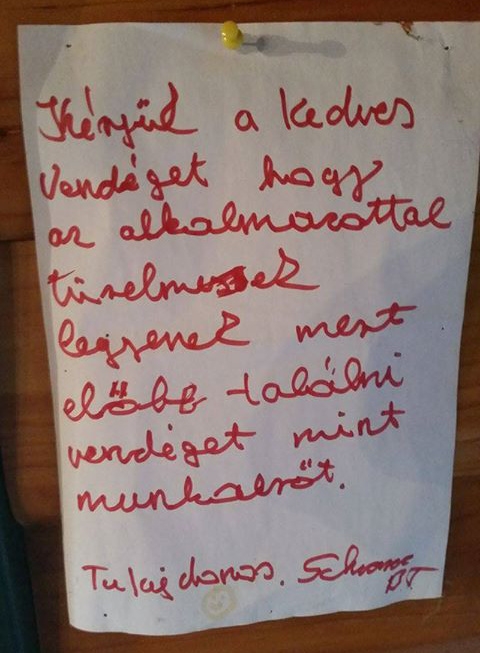 Kérjük a kedves
vendéget hogy
az alkalmazottal
türelmesek
legyenek mert
előbb találni
vendéget mint
munkaerőt.
Tulajdonos.